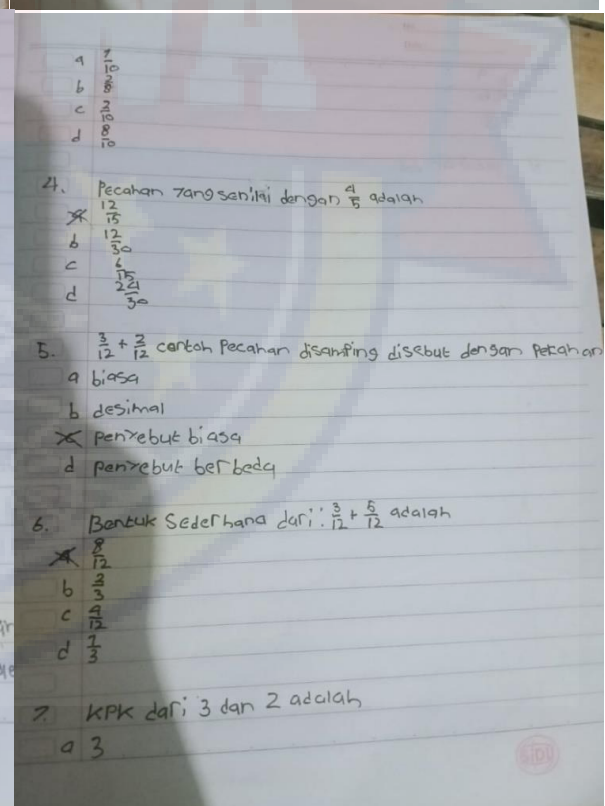 a 7/10
b 3/8
c 3/10
d 8/10
4. Pecahan yang senilai dengan 4/5 adalah
a 12/15
b 12/30
c 6/15
d 24/30
5. 3/12 + 2/12 contoh Pecahan disamping disebut dengan Pecahan
a biasa
b desimal
c penyebut biasa
d penyebut berbeda
6. Bentuk Sederhana dari : 3/12 + 5/12 adalah
a 8/12
b 2/3
c 4/12
d 1/3
7. KPK dari 3 dan 2 adalah
a 3
SIDU